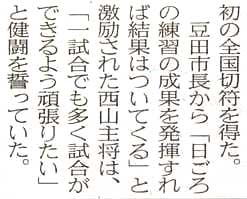 初の全国切符を得た。
　豆田市長から「日ごろ
の練習の成果を発揮すれ
ば結果はついてくる」と
激励された西山主将は、
「一試合でも多く試合が
できるよう頑張りたい」
と健闘を誓っていた。